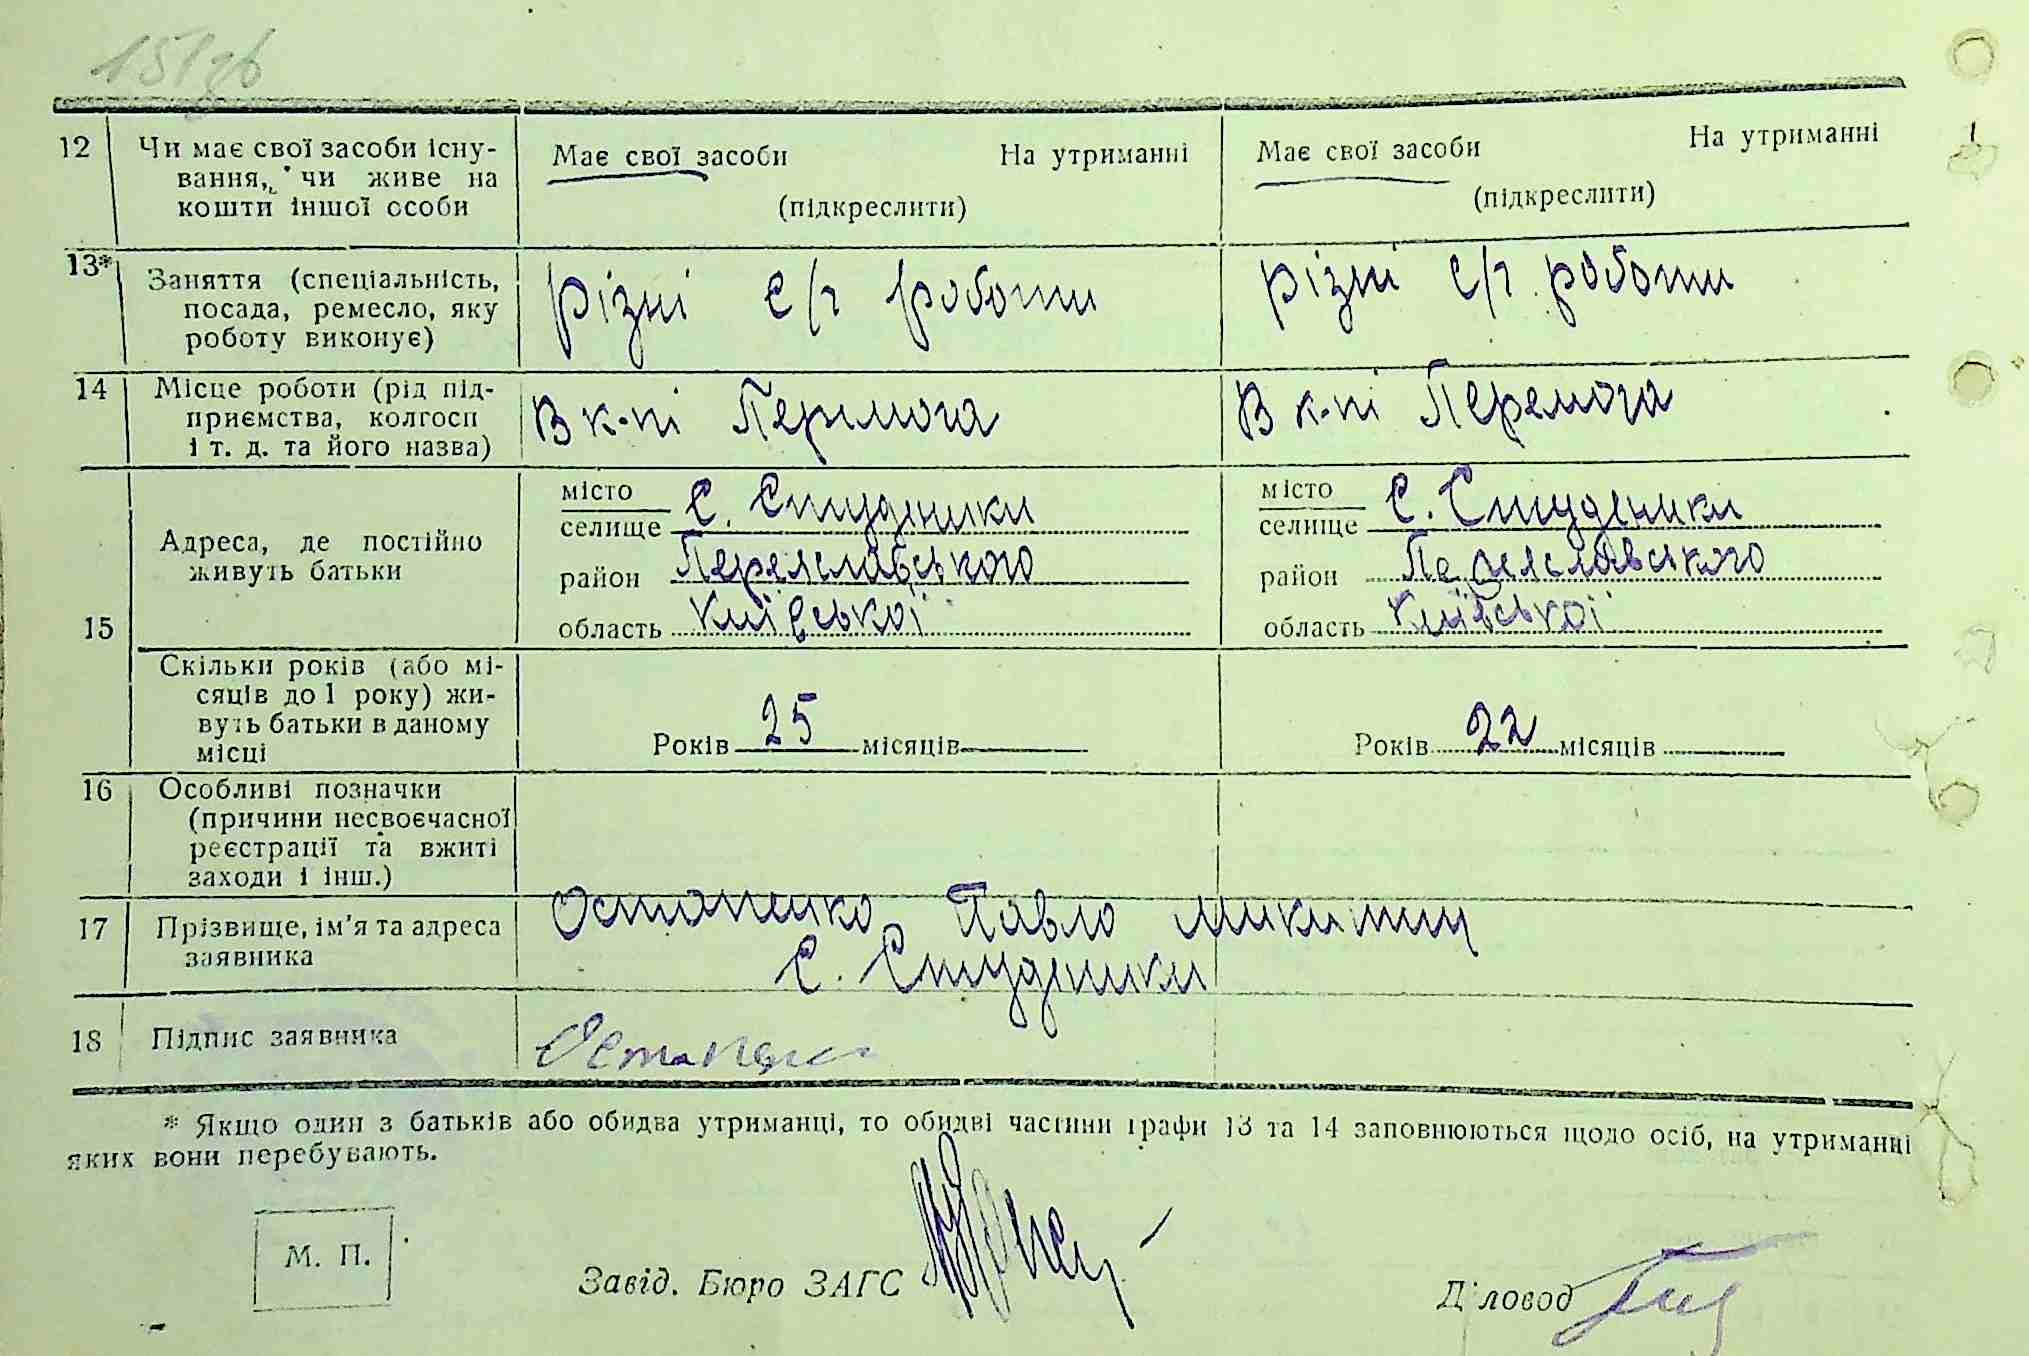 151зв
12 Чи має свої засоби існу- Має свої засоби На утриманні Має свої засоби На утриманні
вання, чи живе на
кошти іншої особи (підкреслити) (підкреслити)
13* Заняття (спеціальність, різні с/г роботи різні с/г роботи
посада, ремесло, яку
роботу виконує)
14 Місце роботи (рід під- В к-пі Перемога В к-пі Перемога
приємства, колгосп
і т. д. та його назва)
15 Адреса, де постійно
живуть батьки
місто
селище С. Студеники
район Переяславського
область Київської
місто
селище С. Студеники
район Переяславського
область Київської
Скільки років (або мі-
сяців до 1 року) жи-
вуть батьки в даному
місці
Років 25 місяців Років 22 місяців
16 Особливі позначки
(причини несвоєчасної
реєстрації та вжиті
заходи і інш.)
17 Прізвище, ім'я та адреса Остапенко Павло Микитич
заявника С. Студеники
18 Підпис заявника Остапенко
* Якщо один з батьків або обидва утриманці, то обидві частини графи 13 та 14 заповнюються щодо осіб, на утриманні
яких вони перебувають.
М. П.
Завід. Бюро ЗАГС
Діловод